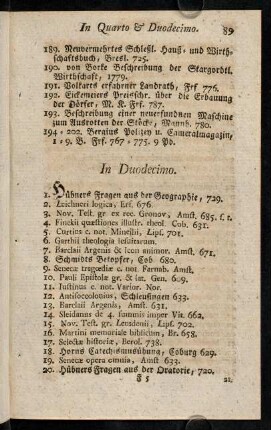 In Quarto & Duodecimo. 89
189. Neuvermehrtes Schlesl. Hauß- und Wirth-
schaftsbuch, Bresl. 725.
190. von Borke Beschreibung der Stargordtl.
Wirthschaft, 1779.
191. Volkarts erfahrner Landrath, Frf 776.
192. Eickemeiers Preisschr. über die Erbauung
der Dörfer, M. K. Frf. 787.
193. Beschreibung einer neuerfundnen Maschine
zum Ausrotten der Stöcke, Mannh. 780.
194-202. Bergius Polizey u. Cameralmagazin,
1-9. B. Frf. 767-775. 9 Bd.
In Duodecimo.
1. Hübners Fragen aus der Geographie, 729.
2. Zeichneri logica, Erf. 676.
3. Nov. Test. gr. ex rec. Gronov, Amst. 685. C. t.
4. Finckii quæstiones illustr. theol. Cob. 631.
5. Curtius c. not. Minellii, Lips. 701.
6. Garthii theologia Jesuitarum.
7. Barclaii Argenis & Icon animor. Amst. 671.
8. Schmidts Betopfer, Cob. 680.
9. Senecæ tragœdiæ c. not. Farnab. Amst.
10. Pauli Epistolæ gr. & lat. Gen. 609.
11. Justinus c. not. Varior. Nor.
12. Antisoccolonius, Schleusingen 633.
13. Barclaii Argenis, Amst. 631.
14. Sleidanus de 4. summis imper Vit. 662.
15. Nov. Test. gr. Leusdenii, Lips. 702.
16. Martini memoriale biblicum, Br. 658.
17. Selectæ historiæ, Berol. 708.
18. Horns Catechismusübung, Coburg 629.
19. Senecæ opera omnia, Amst. 633.
20. Hübners Fragen aus der Oratorie, 720.
F 5 21.